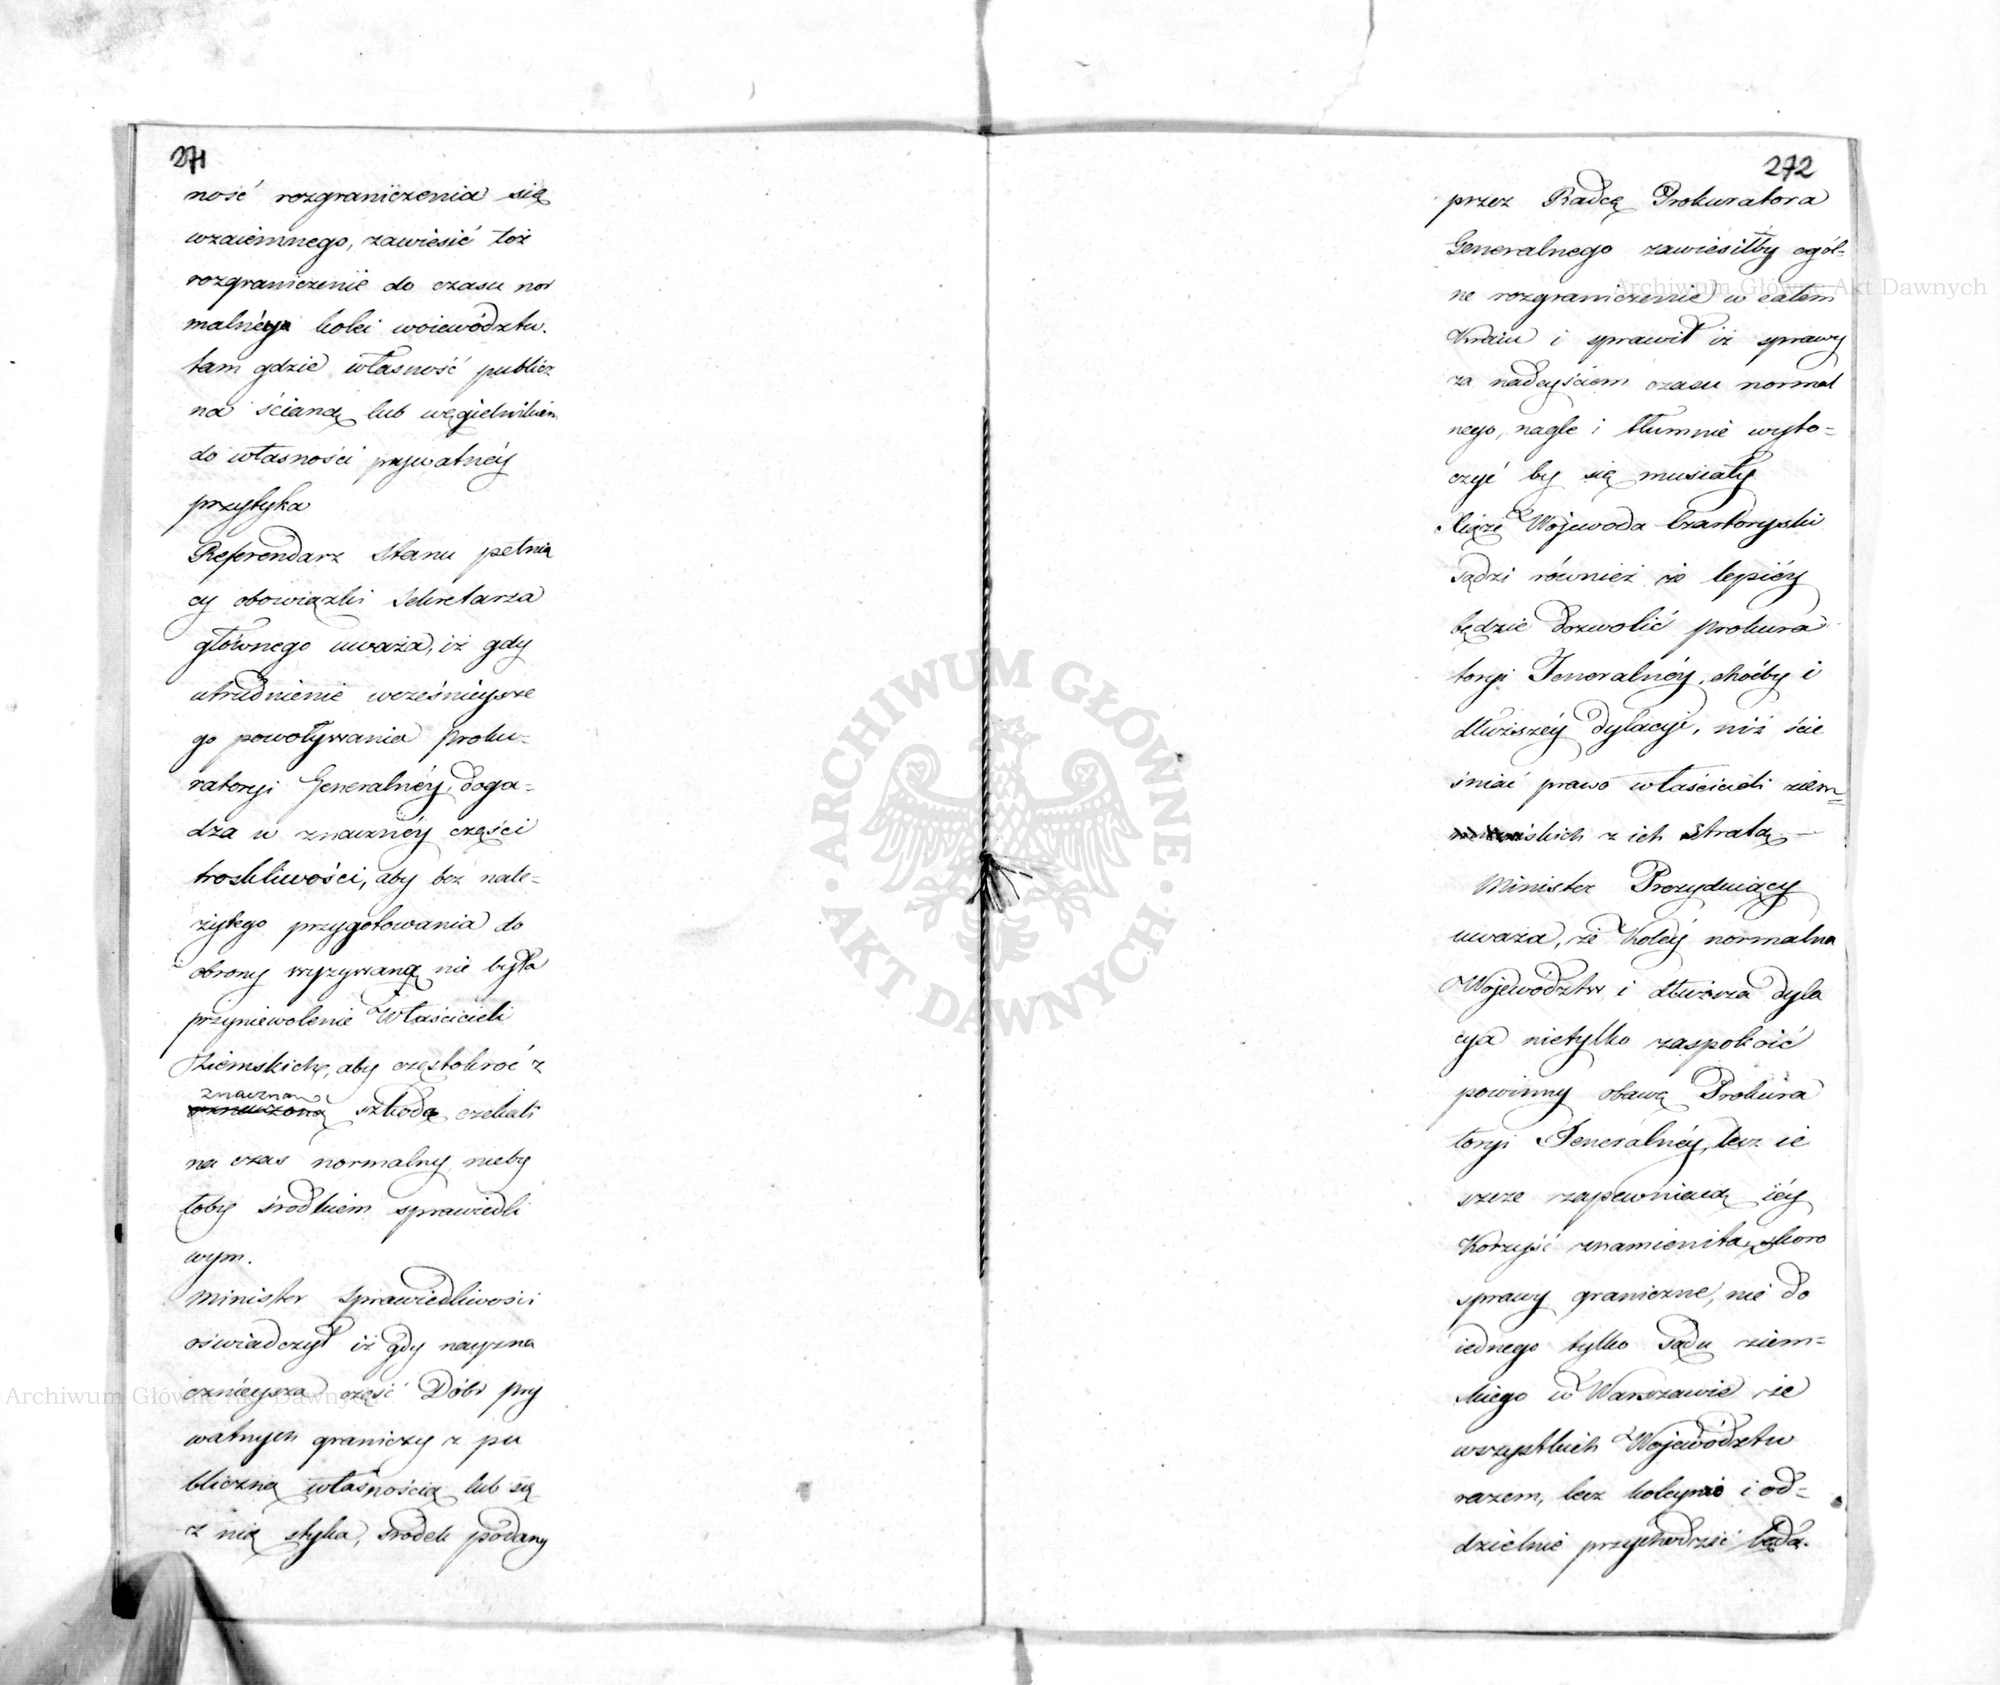 271
ność rozgraniczenia się
wzaiemnego, zawiesić toż
rozgraniczenie do czasu nor
malnéy kolei woiewództw.
tam gdzie własność publicz
na ścianą lub węgielnikiem
do własności prywatnéy
przytyka
Referendarz Stanu pełnią
cy obowiązki Sekretarza
głównego uważa, iż gdy
utrudnienie wcześnieysze
go powoływania Proku-
ratoryi Generalnéy, doga-
dza w znacznéy części
troskliwości, aby bez nale-
żytego przygotowania do
obrony wyzywaną nie była
przyniewolenie Właścicieli
Ziemskich, aby częstokroć z
znaczną
szkodą czekali
na czas normalny nieby
łoby środkiem sprawiedli
wym.
Minister Sprawiedliwości
oświadczył iż gdy nayzna
cznieysza część Dóbr pry
watnych graniczy z pu
bliczną własnością lub się
z nią styka, środek podany
272
przez Radcę Prokuratora
Generalnego zawiesiłby ogól-
ne rozgraniczenie w całem
Kraiu i sprawił iż sprawy
za nadeyściem czasu normal
nego, nagle i tłumnie wyto-
czyć by się musiały
Xiąże Wojewoda Czartoryski
sądzi również że lepiéy
będzie dozwolić Prokura
toryi Jeneralnéy, choćby i
dłuższéy dylacyi, niż ście
śniać prawo właścicieli ziem=
skich z ich stratą. —
Minister Prezyduiący
uważa, że Koléy normalna
Województw i dłuższa dyla
cya nietylko zaspokoić
powinny obawę Prokura
toryi Jeneralnéy, lecz ie
szcze zapewniaią iéy
Korzyść znamienitą, skoro
sprawy graniczne, nie do
iednego tylko Sądu ziem-
skiego w Warszawie ze
wszystkich Województw
razem, lecz koleyno i od-
dzielnie przychodzić będą.
Archiwum Główne Akt Dawnych
Archiwum Główne Akt Dawnych
ARCHIWUM GŁÓWNE
AKT DAWNYCH